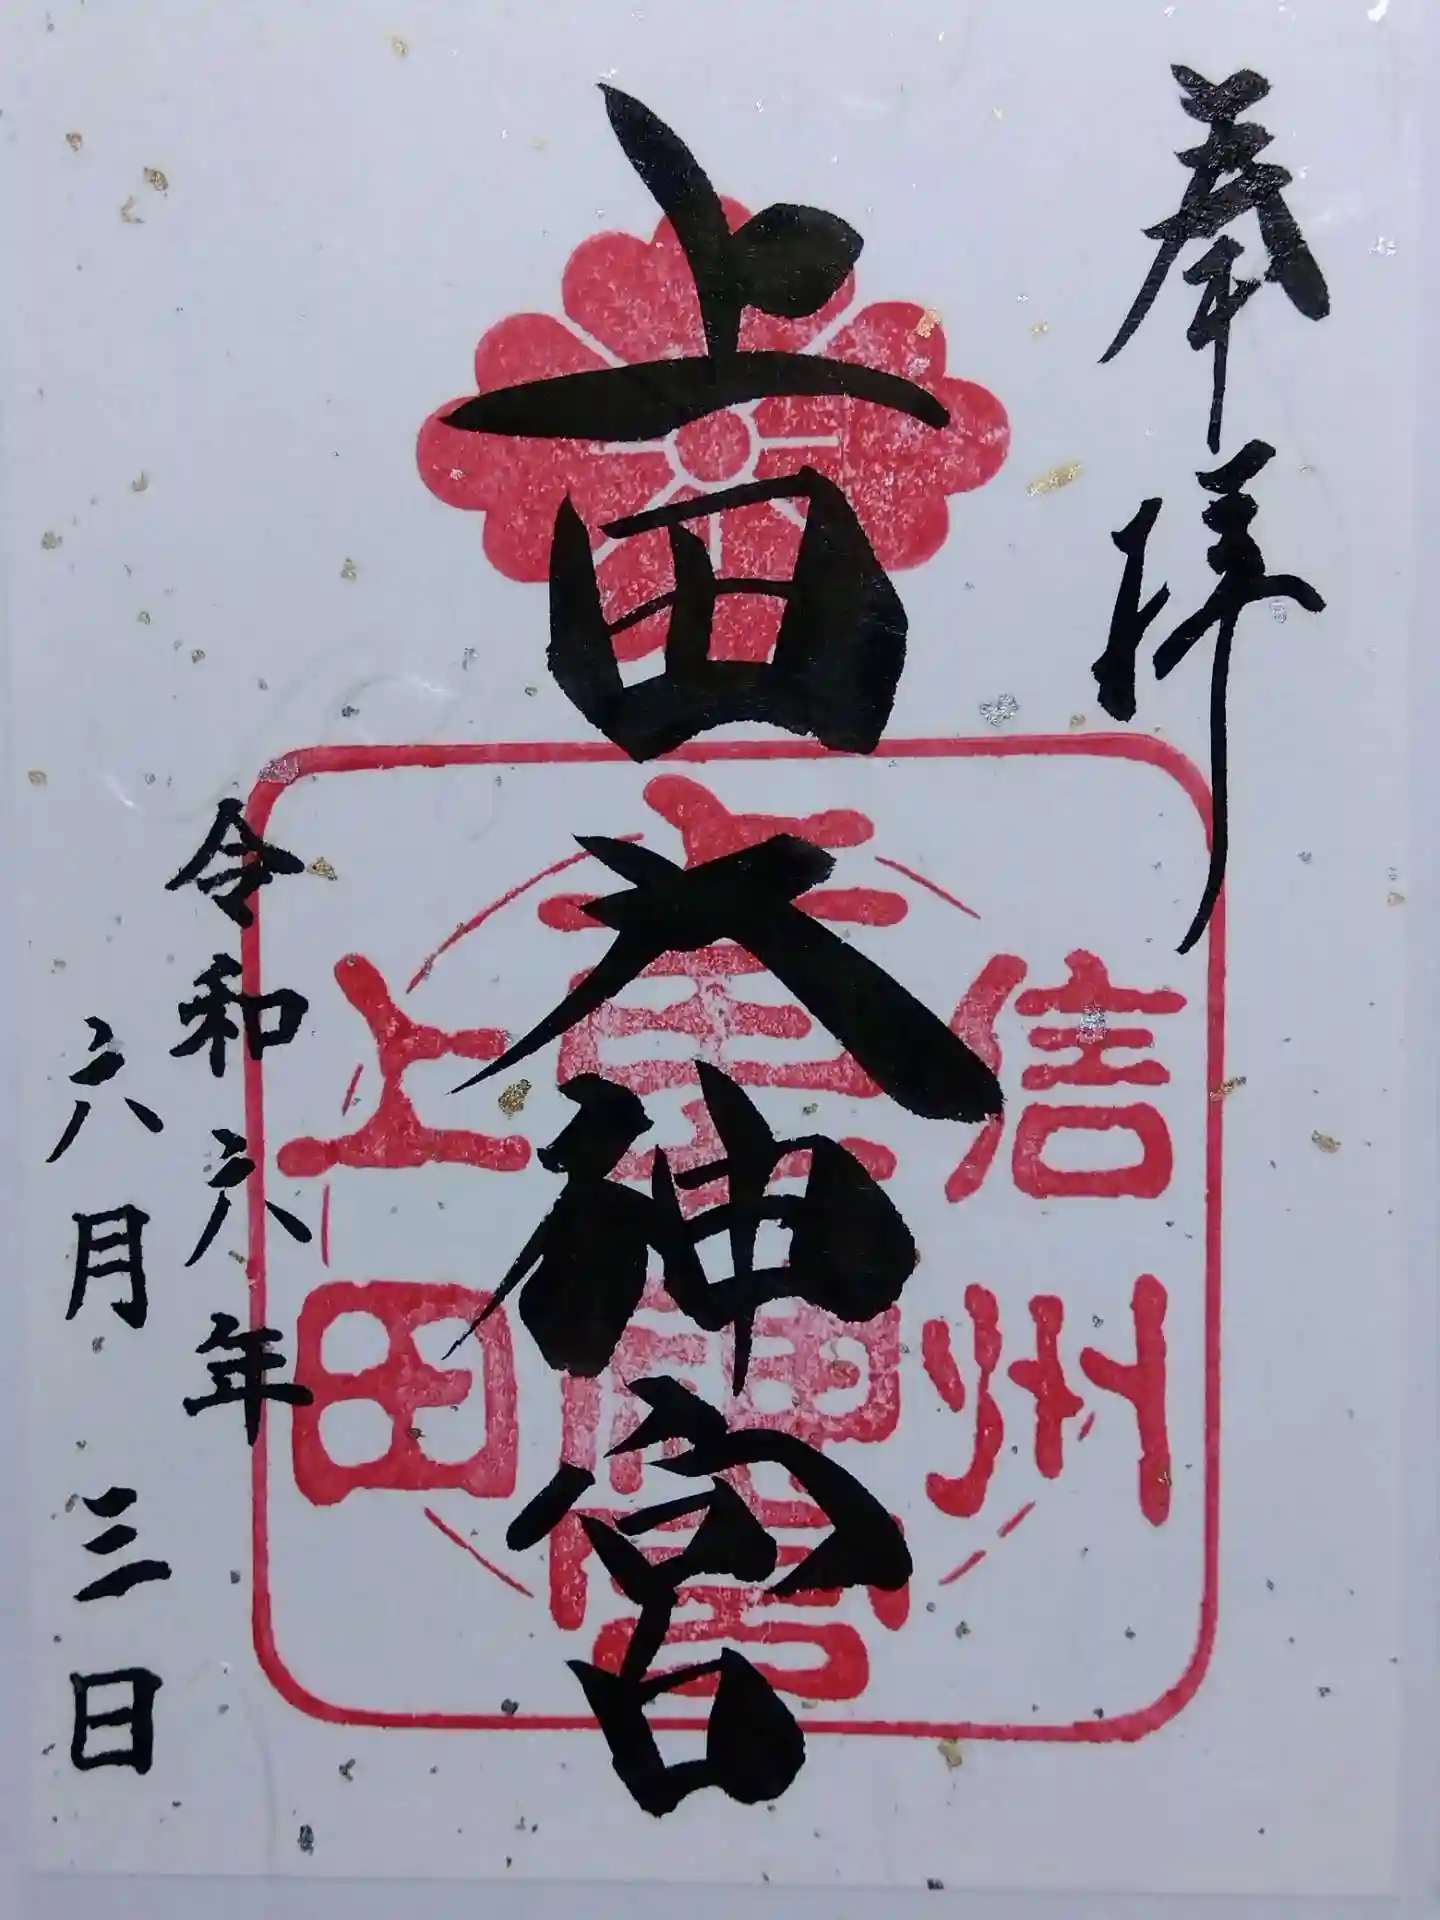 奉拝
上田大神宮
信州
上田
大神宮
令和六年
六月三日